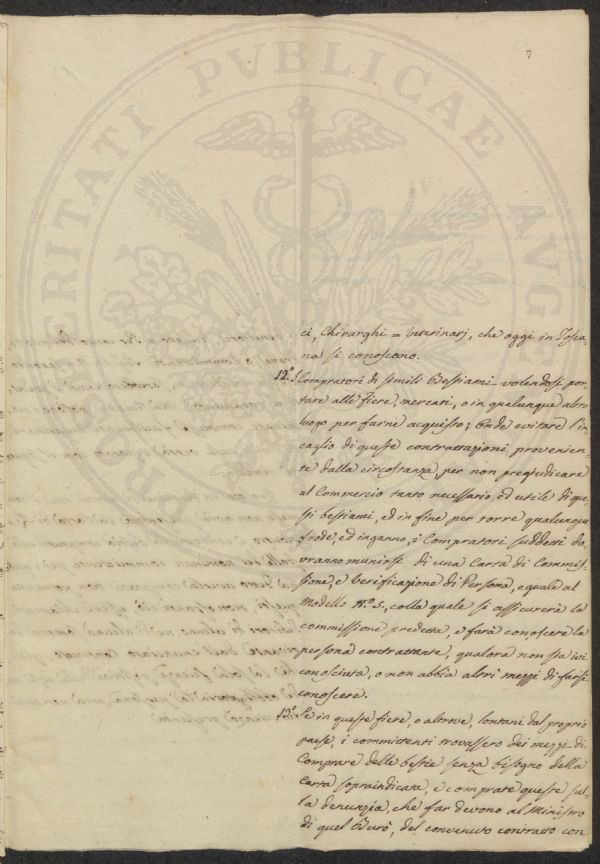 7
PROSPERITATI PVBLICAE AVG
ci, Chirurghi = Veterinarj, che oggi in Tosca-
na si conoscono.
12.° I Compratori di simili Bestiami volendosi por-
tare alle fiere, mercati, o in qualunque altro
luogo per farne acquisto; Onde evitare l'in-
caglio di queste contrattazioni provenien-
te dalla circostanza, per non pregiudicare
al Commercio tanto necessario, ed utile di que-
sti bestiami, ed in fine per torre qualunque
frode, ed inganno, i Compratori suddetti do-
vranno munirsi di una Carta di Commis-
sione, e Verificazione di Persona, eguale al
Modello N.° 5, colla quale si assicurerà la
commissione predetta, e farà conoscere la
persona contrattante, qualora non sia ivi
conosciuta, o non abbia altri mezzi di farsi
conoscere.
13.° Se in queste fiere, o altrove, lontani dal proprio
paese, i committenti trovassero dei mezzi di
Comprare delle bestie senza bisogno della
Carta sopraindicata, e comprate queste sul-
la denunzia, che far devono al Ministro
di quel Burò, del convenuto contratto con